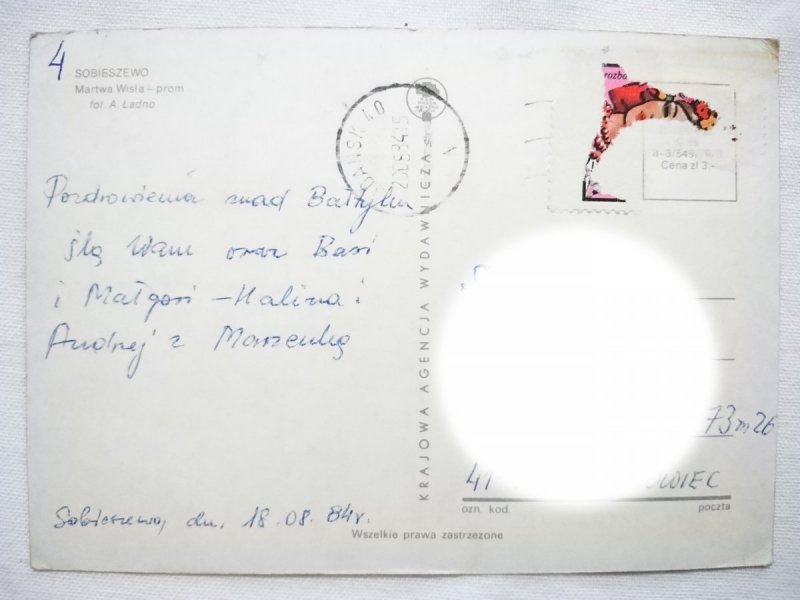 4
SOBIESZEWO
Martwa Wisła – prom
fot. A. Ładno
Pozdrowienia znad Bałtyku
ślą Wam oraz Basi
i Małgosi – Halina i
Andrzej z Marzenką
Sobieszewo, dn. 18.08.84r.
KRAJOWA AGENCJA WYDAWNICZA
GDAŃSK 40
rozba
Cena zł 3,-
73 m 26
41-
OWIEC
ozn. kod.
poczta
Wszelkie prawa zastrzeżone